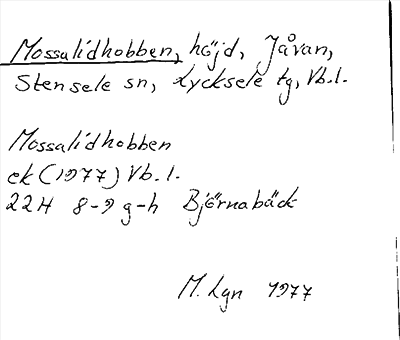 Mossalidhobben, höjd, Jåvan,
Stensele sn, Lycksele tg, Vb.l.
Mossalidhobben
ek (1977) Vb. l.
22H 8-9 g-h Björnabäck
M. Lgn 1977